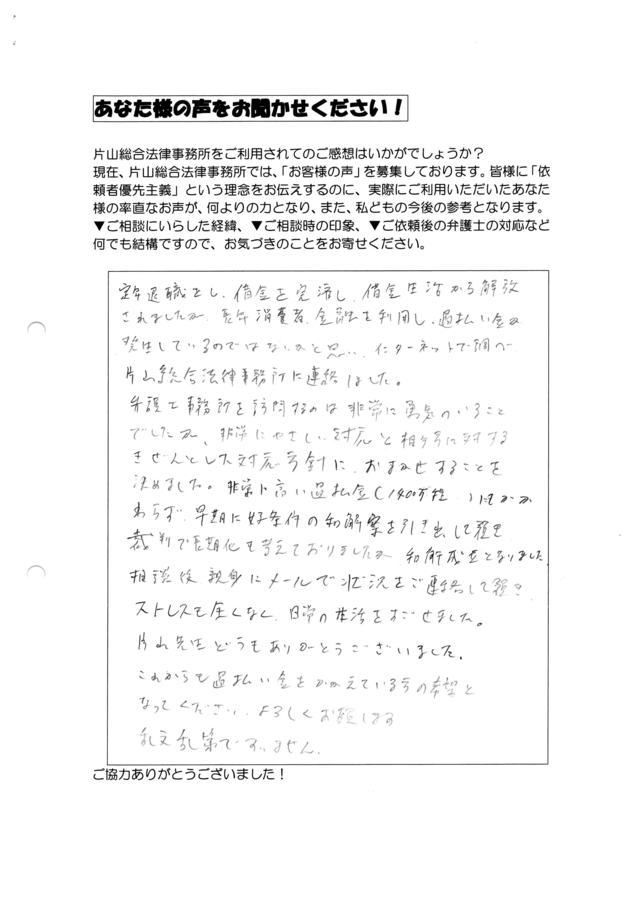 あなた様の声をお聞かせください！
片山総合法律事務所をご利用されてのご感想はいかがでしょうか？
現在、片山総合法律事務所では、「お客様の声」を募集しております。皆様に「依
頼者優先主義」という理念をお伝えするのに、実際にご利用いただいたあなた
様の率直なお声が、何よりの力となり、また、私どもの今後の参考となります。
▼ご相談にいらした経緯、▼ご相談時の印象、▼ご依頼後の弁護士の対応など
何でも結構ですので、お気づきのことをお寄せください。
定年退職をし、借金を完済し、借金生活から解放
されましたが、長年消費者金融を利用し、過払い金が
発生しているのではないかと思い、インターネットで調べ
片山総合法律事務所に連絡しました。
弁護士事務所を訪問するのは非常に勇気のいること
でしたが、非常にやさしい対応と相手方に対する
きぜんとした対応方針に、おまかせすることを
決めました。非常に高い過払金(1400万程)にもかか
わらず、早期に好条件の和解案を引き出して頂き
裁判で長期化も考えておりましたが和解成立となりました
相談後親身にメールで状況をご連絡して頂き
ストレスも全くなく、日常の生活をすごせました。
片山先生どうもありがとうございました。
これからも過払い金をかかえている方の希望と
なってください。よろしくお願します
乱文乱筆ですいません。
ご協力ありがとうございました！